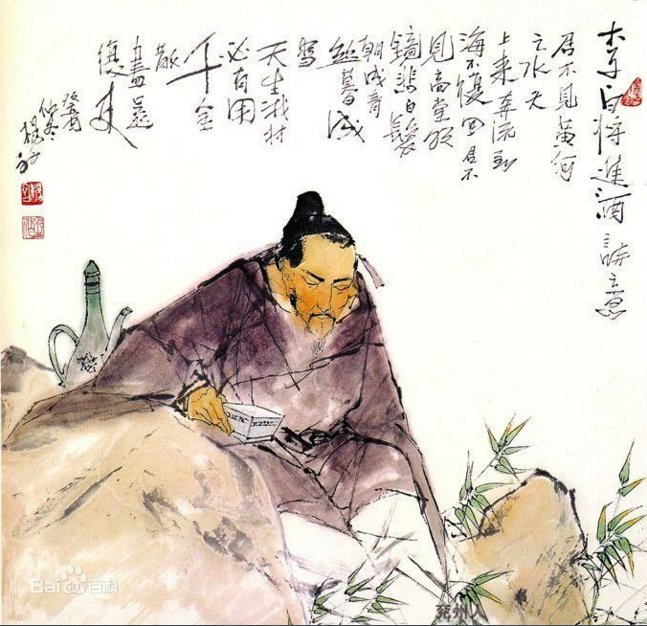 李白将進酒詩意
君不見黄河
之水天
上来奔流到
海不復回君不
見高堂明
鏡悲白髮
朝成青
絲暮成
雪
天生我材
必有用
千金
散
盡還
復来
癸酉
仲冬
Bai百科
兖州人